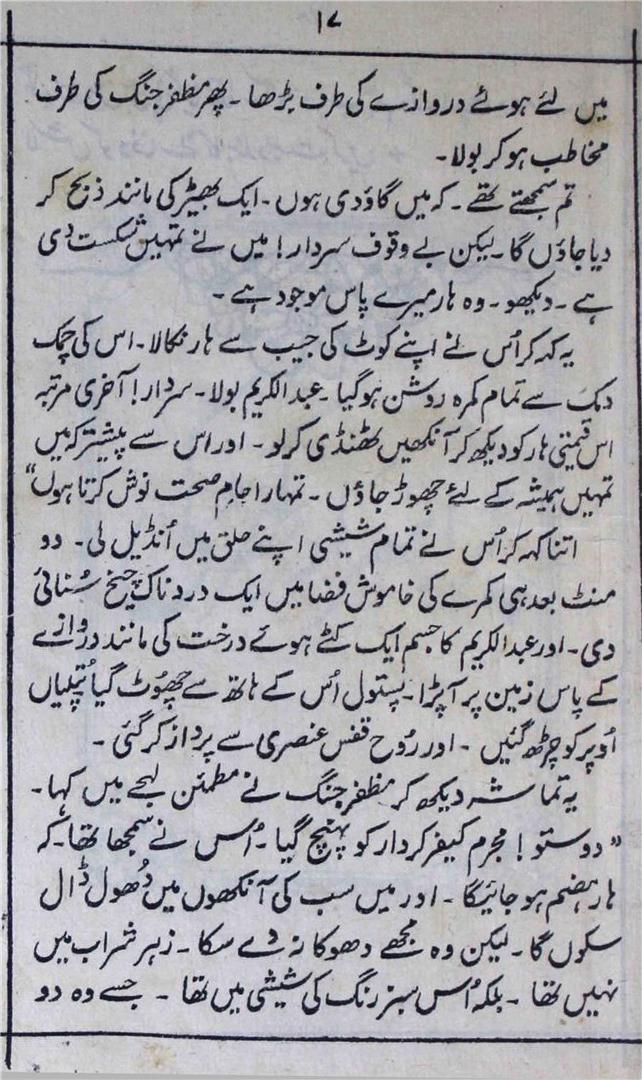 ۱۷
میں لئے ہوئے دروازے کی طرف بڑھا ۔ پھر مظفر جنگ کی طرف
مخاطب ہو کر بولا۔
تم سمجھتے تھے ۔ کہ میں گاؤدی ہوں ۔ ایک بھیڑ کی مانند ذبح کر
دیا جاؤں گا ۔ لیکن بے وقوف سردار! میں نے تمہیں شکست دی
ہے ۔ دیکھو ۔ وہ ہار میرے پاس موجود ہے ۔
یہ کہہ کر اُس نے اپنے کوٹ کی جیب سے ہار نکالا ۔ اس کی چمک
دمک سے تمام کمرہ روشن ہو گیا ۔ عبدالکریم بولا ۔ سردار! آخری مرتبہ
اس قیمتی ہار کو دیکھ کر آنکھیں ٹھنڈی کر لو ۔ اور اس سے پیشتر کہ میں
تمہیں ہمیشہ کے لئے چھوڑ جاؤں ۔ تمہارا جام صحت نوش کرتا ہوں“
اتنا کہہ کر اُس نے تمام شیشی اپنے حلق میں اُنڈیل لی ۔ دو
منٹ بعد ہی کمرے کی خاموش فضا میں ایک دردناک چیخ سُنائی
دی ۔ اور عبدالکریم کا جسم ایک کٹے ہوئے درخت کی مانند دروازے
کے پاس زمین پر آ پڑا ۔ پستول اُس کے ہاتھ سے چھوٹ گیا پُتلیاں
اُوپر کو چڑھ گئیں ۔ اور رُوح قفس عنصری سے پرداز کر گئی ۔
یہ تماشہ دیکھ کر مظفر جنگ نے مطمئن لہجے میں کہا ۔
”دوستو! مجرم کیفر کردار کو پہنچ گیا ۔ اُس نے سمجھا تھا ۔ کہ
ہار ہضم ہو جائیگا ۔ اور میں سب کی آنکھوں میں دُھول ڈال
سکوں گا ۔ لیکن وہ مجھے دھوکا نہ دے سکا ۔ زہر شراب میں
نہیں تھا ۔ بلکہ اُس سبز رنگ کی شیشی میں تھا ۔ جسے وہ دو